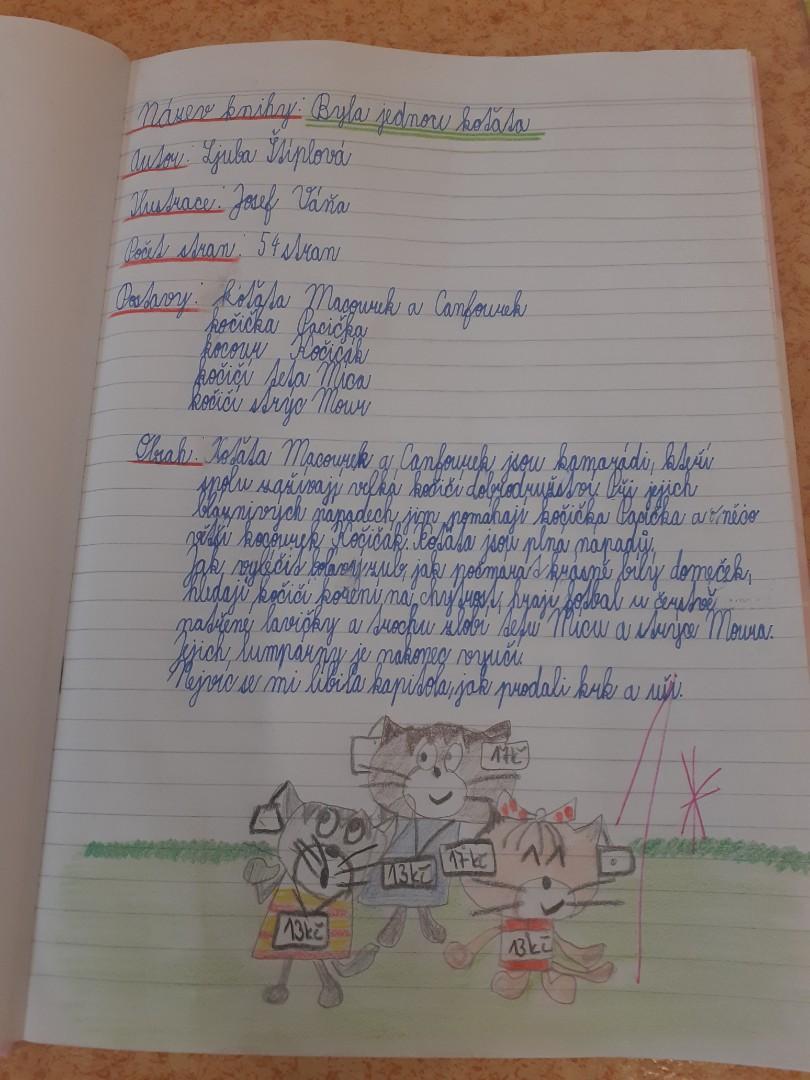 Název knihy: Byla jednou koťata
Autor: Ljuba Štíplová
Ilustrace: Josef Váňa
Počet stran: 54 stran
Postavy: koťata Macourek a Canfourek
kočička Pacička
kocour Kočičák
kočičí teta Mica
kočičí strýc Mour
Obsah: Koťata Macourek a Canfourek jsou kamarádi, kteří
spolu zažívají velká kočičí dobrodružství. Při jejich
bláznivých nápadech jim pomáhají kočička Pacička a o něco
větší kocourek Kočičák. Koťata jsou plná nápadů,
jak vyléčit bolavý zub, jak počmárat krásně bílý domeček,
hledají kočičí koření na chytrost, hrají fotbal u čerstvě
natřené lavičky a trochu zlobí tetu Micu a strýce Moura.
Jejich lumpárny je nakonec vyučí.
Nejvíc se mi líbila kapitola, jak prodali krk a uši.
17kč
13kč
17kč
13kč
13kč